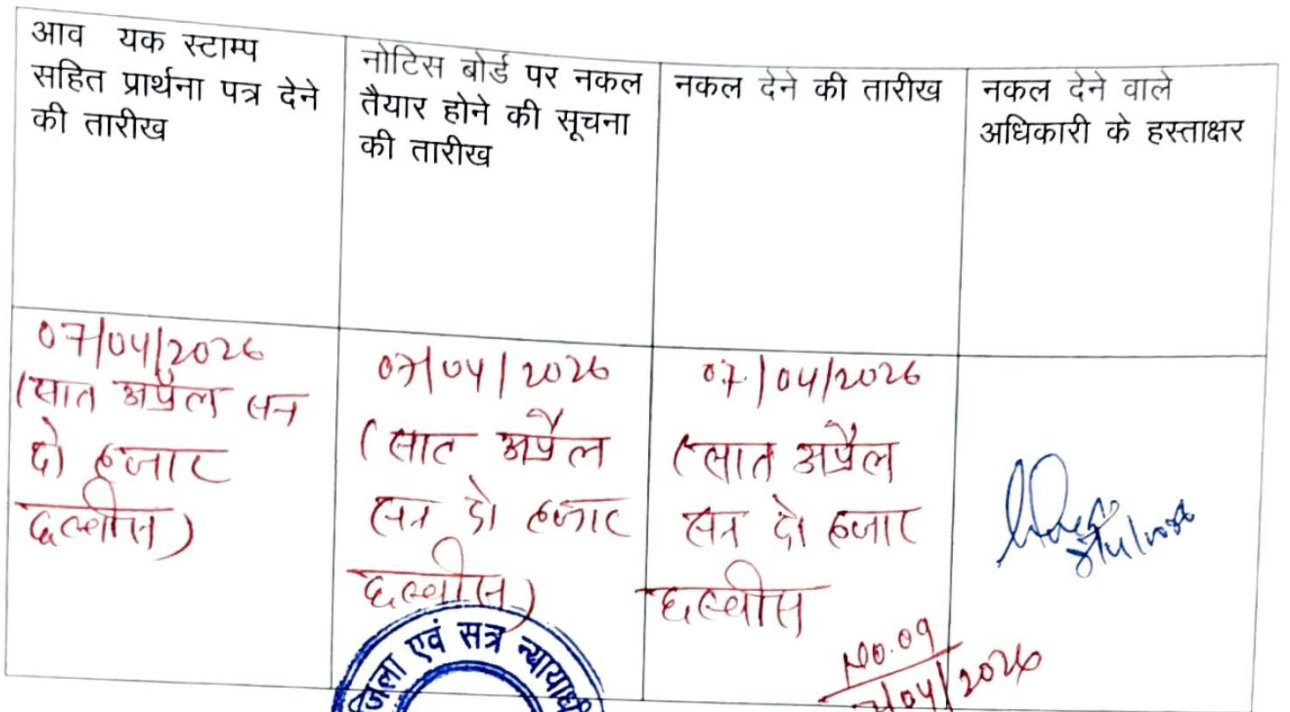 आव यक स्टाम्प
सहित प्रार्थना पत्र देने
की तारीख
नोटिस बोर्ड पर नकल
तैयार होने की सूचना
की तारीख
नकल देने की तारीख
नकल देने वाले
अधिकारी के हस्ताक्षर
07/04/2026
(सात अप्रैल सन
दो हजार
छब्बीस)
07/04/2026
(सात अप्रैल
सन दो हजार
छब्बीस)
07/04/2026
(सात अप्रैल
सन दो हजार
छब्बीस
No.09
/04/2026
जिला एवं सत्र न्यायाधी